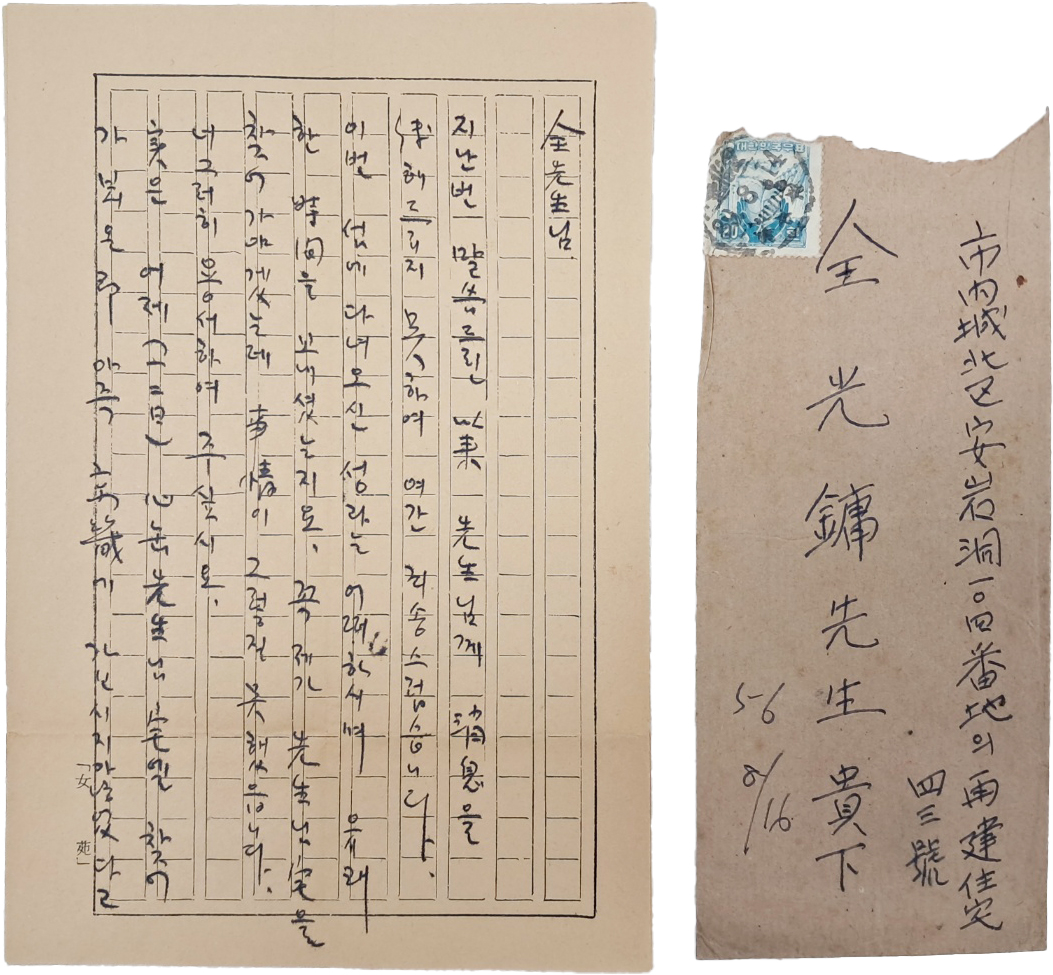 全先生님.
지난번 말씀드린 以來 先生님께 消息을
傳해드리지 못하여 여간 죄송스럽습니다.
이번 섬에 다녀오신 섬라는 어떠하시며 유쾌
한 時間을 보내셨는지요. 꼭 제가 先生님宅을
찾어가야겠는데 事情이 그렇질 못했습니다.
너그러히 용서하여 주십시요.
實은 어제(二日) 心汕先生님宅엘 찾어
가 뵈온 即 아즉 承諾기 가보시지않었다고
「女苑」
대한민국우표
市內城北区安岩洞一〇四番地의 再建住宅
四三號
全光鏞先生貴下
56
8/16